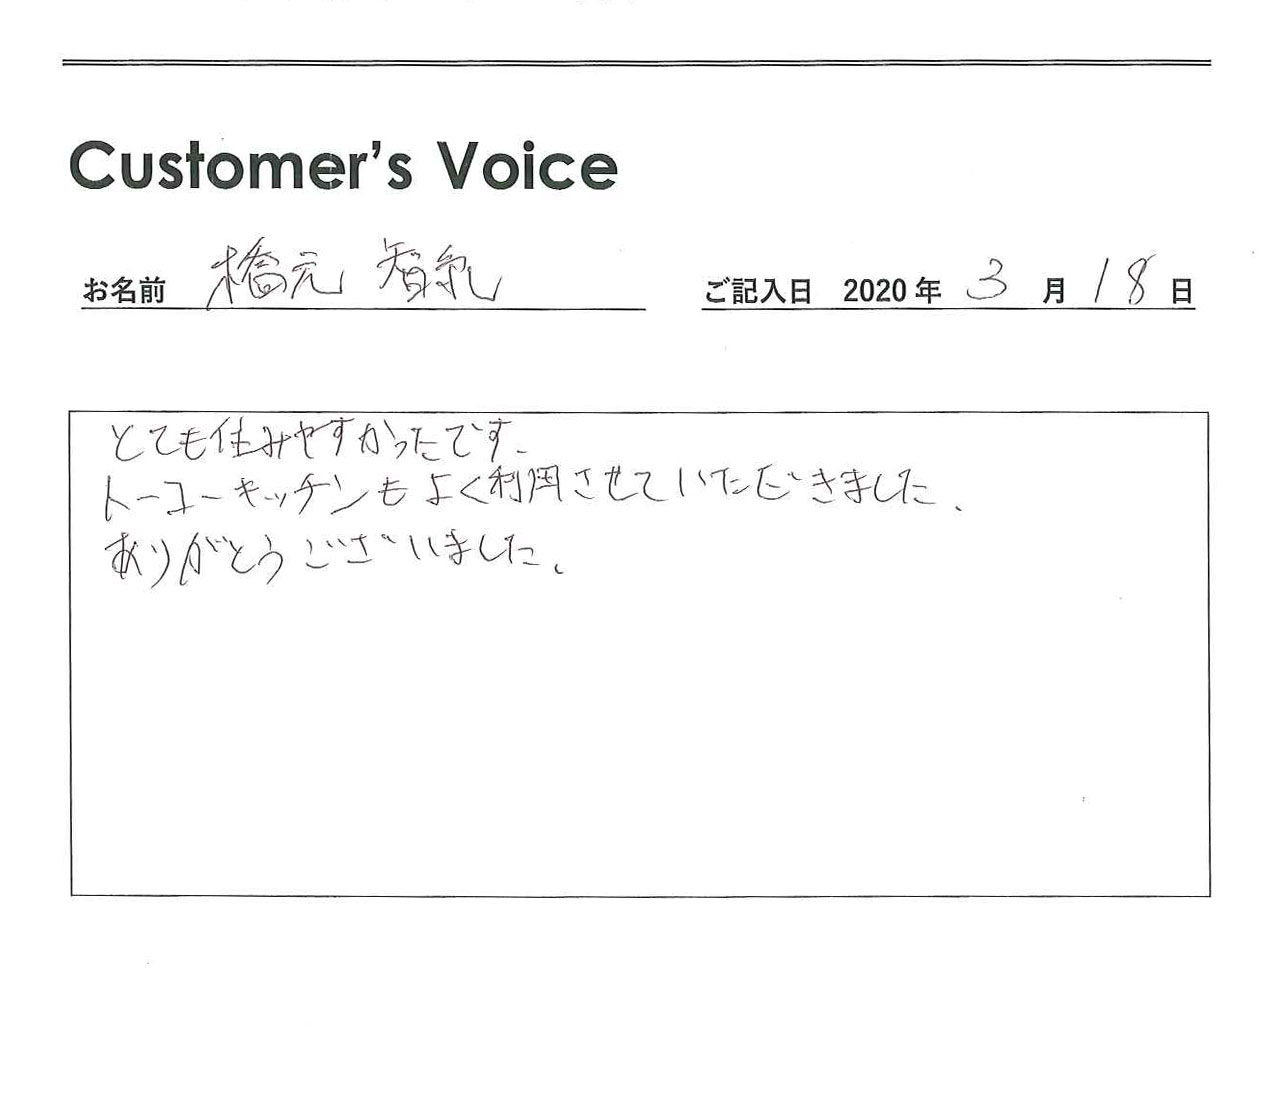 Customer's Voice
お名前 橋元 智礼 ご記入日 2020年 3月 18日
とても住みやすかったです.
トーコーキッチンもよく利用させていただきました.
ありがとうございました.